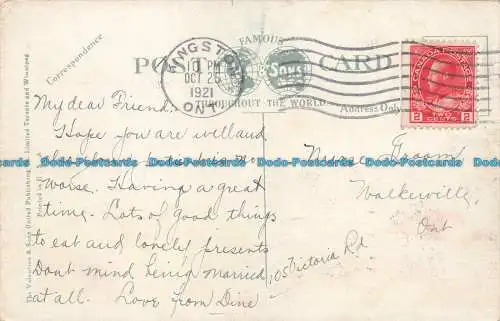 FAMOUS
POST CARD
THROUGHOUT THE WORLD
Correspondence
Address Only
The Valentine & Sons United Publishing Co. Limited Toronto and Winnipeg
Printed in
KINGSTON
10 PM
OCT 25
1921
ONT
CANADA POSTAGE
2 2
TWO
CENTS
My dear Friend:
Hope you are well and
worse. Having a great
time. Lots of good things
to eat and lovely presents
Dont mind being married
at all. Love from
Groom
105 Victoria Rd
Walkerville,
Ont
Postcards-Docks Postcards-Docks Postcards-Docks Postcards-Docks